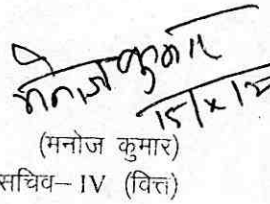 मनोज कुमार
(मनोज कुमार)
सचिव– IV (वित्त)